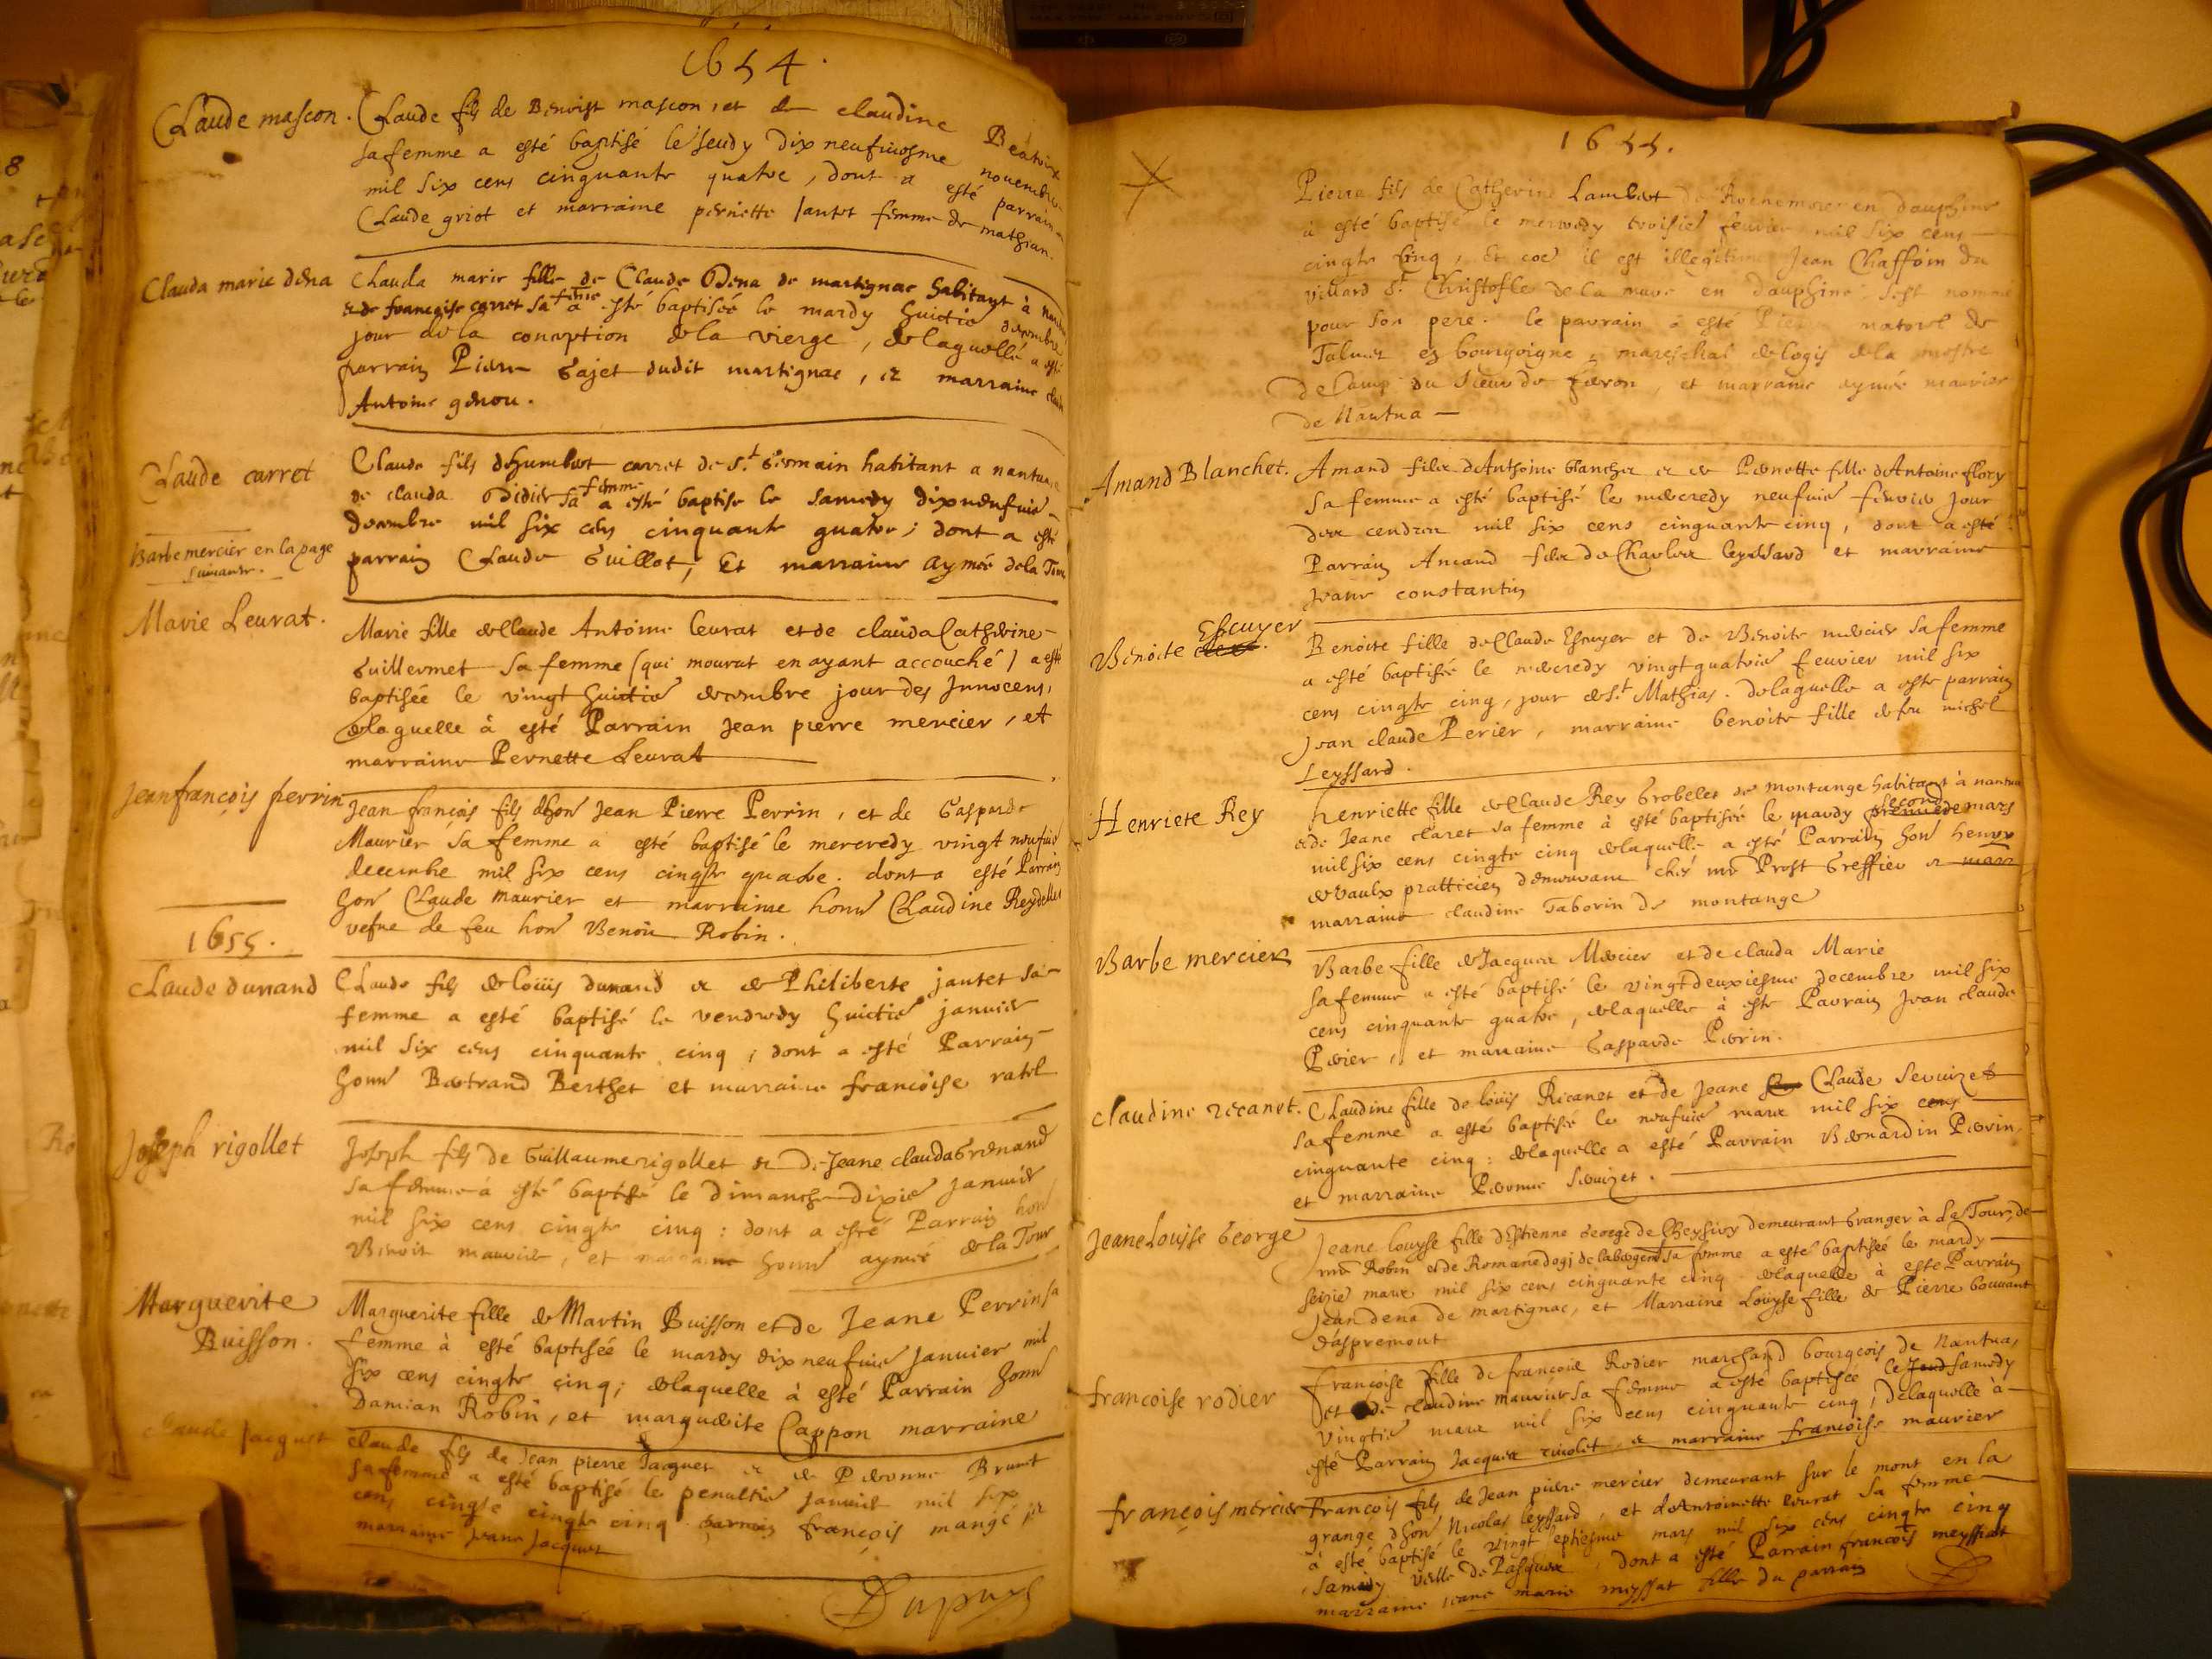 1654.
Claude mascon.
Claude fils de Benoist mascon, et de claudine Beatrix
sa femme a esté baptisé le Jeudy dix neufviesme novembre
mil six cens cinquante quatre, dont a esté parrain
Claude griot et marraine pernette Jantet femme de mathian.
Clauda marie dena
Clauda marie fille de Claude Dena de martignac habitant à
& de françoise carret sa femme a esté baptiseé le mardy huictie decembre
jour de la conception de la vierge, de laquelle a esté
parrain Pierre Gajet dudit martignac, et marraine
Antoine genou.
Claude carret
Claude fils d'humbert carret de St. Germain habitant a nantua
de clauda Didier sa femme a esté baptise le samedy dixneufvie
decembre mil six cens cinquante quatre; dont a esté
parrain Claude Guillot, Et marraine aymée dela Tour
Barbe mercier en la page
suivante.
Marie Leurat.
Marie fille de Claude Antoine leurat et de clauda Catherine
Guillermet sa femme (qui mourut en ayant accouché) a esté
baptisée le vingt huictie decembre jour des Innocens,
de laquelle à esté Parrain Jean pierre mercier, et
marraine Pernette Leurat
Jean françois perrin
Jean françois fils d'hon Jean Pierre Perrin, et de Gasparde
Maurier sa femme a esté baptisé le mercredy vingt neufvie
decembre mil six cens cinqte quatre. dont a esté Parrain
hon Claude maurier et marraine honn Claudine Reydellet
vefve de feu hon Benoit Robin.
1655.
Claude dunand
Claude fils de loüis dunand et de Philiberte jantet sa
femme a esté baptisé le vendredy huictie janvier
mil six cens cinquante cinq; dont a esté Parrain
honn Bertrand Berthet et marraine francoise ratel
Joseph rigollet
Joseph fils de Guillaume rigollet et de Jeane clauda Grenand
sa femme a esté baptisé le dimanche dixie janvier
mil six cens cinqte cinq: dont a esté Parrain hon
Benoit maurier, et marraine honn aymée de la Tour
Marguerite
Buisson.
Marguerite fille de Martin Buisson et de Jeane Perrin sa
femme à esté baptiseé le mardy dix neufvie janvier mil
six cens cinqte cinq; de laquelle à esté Parrain honn
Damian Robin, et marguerite Cappon marraine
Claude Jacquet
claude fils de Jean pierre Jacquet et de Pernonne Brunet
sa femme a esté baptisé le penultie janvier mil six
cens cinqte cinq. parrain françois mangé et
marraine Jeane Jacquet
Dupuys
1655.
Pierre fils de Catherine Lambert de en dauphine
a esté baptisé le mercredy troisie feuvrier mil six cens
cinqte cinq, Et coe il est illegitime Jean Chaffoin du
villard St. Christofle de la mure en dauphiné, s'est nommé
pour son pere. le parrain a esté natorel de
Talmet eb bourgoigne, mareschal de logis de la mestre
de Camp du Sieur de feron, et marraine aymée maurier
de Nantua
Amand Blanchet.
Amand filz d'Anthoine blanchet et de Pernette fille d'Antoine flory
sa femme a esté baptisé le mercredy neufvie fevrier jour
des cendres mil six cens cinquante cinq, dont a esté
Parrain Amand filz de Charles leyssard et marraine
Jeane constantin
Benoite Escuyer.
Benoite fille de Claude Escuyer et de Benoite mercier sa femme
a esté baptisée le mercredy vingtquatrie feuvrier mil six
cens cinqte cinq, jour de St. Mathias. de laquelle a esté parrain
Jean claude Perier, marraine benoite fille de feu michel
Leyssard.
Henriete Rey
henriette fille de Claude Rey Grobelet de montange habitant à nantua
& de Jeane claret sa femme à esté baptisée le mardy premier second de mars
mil six cens cinqte cinq de laquelle a esté Parrain hon henry
devaulx pratticien demeurant chés me Prost Greffier et marr
marraine claudine Taborin de montange
Barbe mercier
Barbe fille de Jacques Mercier et de clauda Marie
sa femme a esté baptisé le vingtdeuxiesme decembre mil six
cens cinquante quatre, de laquelle à esté Parrain Jean claude
Perier, et marraine Gasparde Perin.
Claudine recanet.
Claudine fille de loüis Ricanet et de Jeane Claude Sevuzet
sa femme a esté baptisé le neufvie mars mil six cens
cinquante cinq: de laquelle a esté Parrain Bernardin Perrin
et marraine Pernonne Sevuzet.
Jeane Louyse George
Jeane louyse fille d'Estienne George de Cheysivy demeurant Granger à La Tour, de
me Robin et de Romane dogj de sa femme a esté baptiseé le mardy
seizie mars mil six cens cinquante cinq de laquelle à esté Parrain
Jean dena de martignac, et Marraine Louyse fille de Pierre bouvant
d'aspremont
francoise rodier
françoise fille de francois Rodier marchand bourgeois de Nantua,
et de claudine maurier sa femme a esté baptiseé le Jeud samedy
vingtie mars mil six cens cinquante cinq, de laquelle à
esté Parrain Jacques rivolet, et marraine françoise maurier
françois mercier
francois fils de Jean piere mercier demeurant sur le mont en la
grange d'hon Nicolas leyssard, et d'Antoinette leurat sa femme
à esté baptisé le vingt septiesme mars mil six cens cinqte cinq
Samedy veille de Pasques, dont a esté Parrain francois meyssiat
marraine Jeane marie meyssat fille du parrain